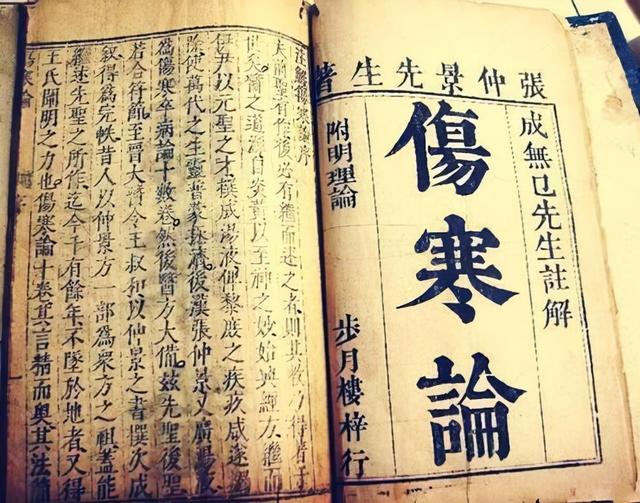 張仲景先生著
成無已先生註解
傷寒論
附明理論
步月樓梓行
註解傷寒論序
夫前聖有作後必有繼而述之者則其教乃得著于
世矣醫之道源自炎黃以至神之妙始興經方繼而
伊尹以元聖之才撰成湯液俾黎庶之疾疚咸遂蠲
除使萬代之生靈普蒙拯濟後漢張仲景又廣湯液
爲傷寒卒病論十數卷然後醫方大備茲先聖後聖
若合符節至晉太醫令王叔和以仲景之書撰次成
敘得爲完帙昔人以仲景方一部爲衆方之祖蓋能
繼述先聖之所作迄今千有餘年不墜於地者又得
王氏闡明之力也傷寒論十卷其言精而奧其法簡
寒論